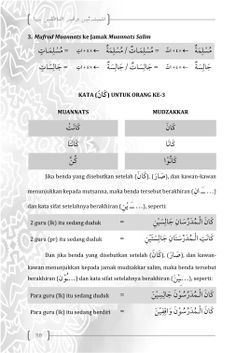 3. Mufrad Muannats ke Jamak Muannats Salim
مُسْلِمَةٌ ← ة + ات = مُسْلِمَةٌ / مُسْلِمَاتٌ = مُسْلِمَاتٌ
جَالِسَةٌ ← ة + ات = جَالِسَةٌ / جَالِسَاتٌ = جَالِسَاتٌ
KATA (كَانَ) UNTUK ORANG KE-3
MUANNATS MUDZAKKAR
كَانَتْ كَانَ
كَانَتَا كَانَا
كُنَّ كَانُوْا
Jika benda yang disebutkan setelah (كَانَ), (صَارَ), dan kawan-kawan
menunjukkan kepada mutsanna, maka benda tersebut berakhiran (ـَـانِ)
dan kata sifat setelahnya berakhiran (ـَـيْنِ), seperti:
2 guru (lk) itu sedang duduk = كَانَ الْمُدَرِّسَانِ جَالِسَيْنِ
2 guru (pr) itu sedang duduk = كَانَتِ الْمُدَرِّسَتَانِ جَالِسَتَيْنِ
Dan jika benda yang disebutkan setelah (كَانَ), (صَارَ), dan kawan-
kawan menunjukkan kepada jamak mudzakkar salim, maka benda tersebut
berakhiran (ـُـوْنَ) dan kata sifat setelahnya berakhiran (ـِـيْنَ), seperti:
Para guru (lk) itu sedang duduk = كَانَ الْمُدَرِّسُوْنَ جَالِسِيْنَ
Para guru (lk) itu sedang berdiri = كَانَ الْمُدَرِّسُوْنَ وَاقِفِيْنَ